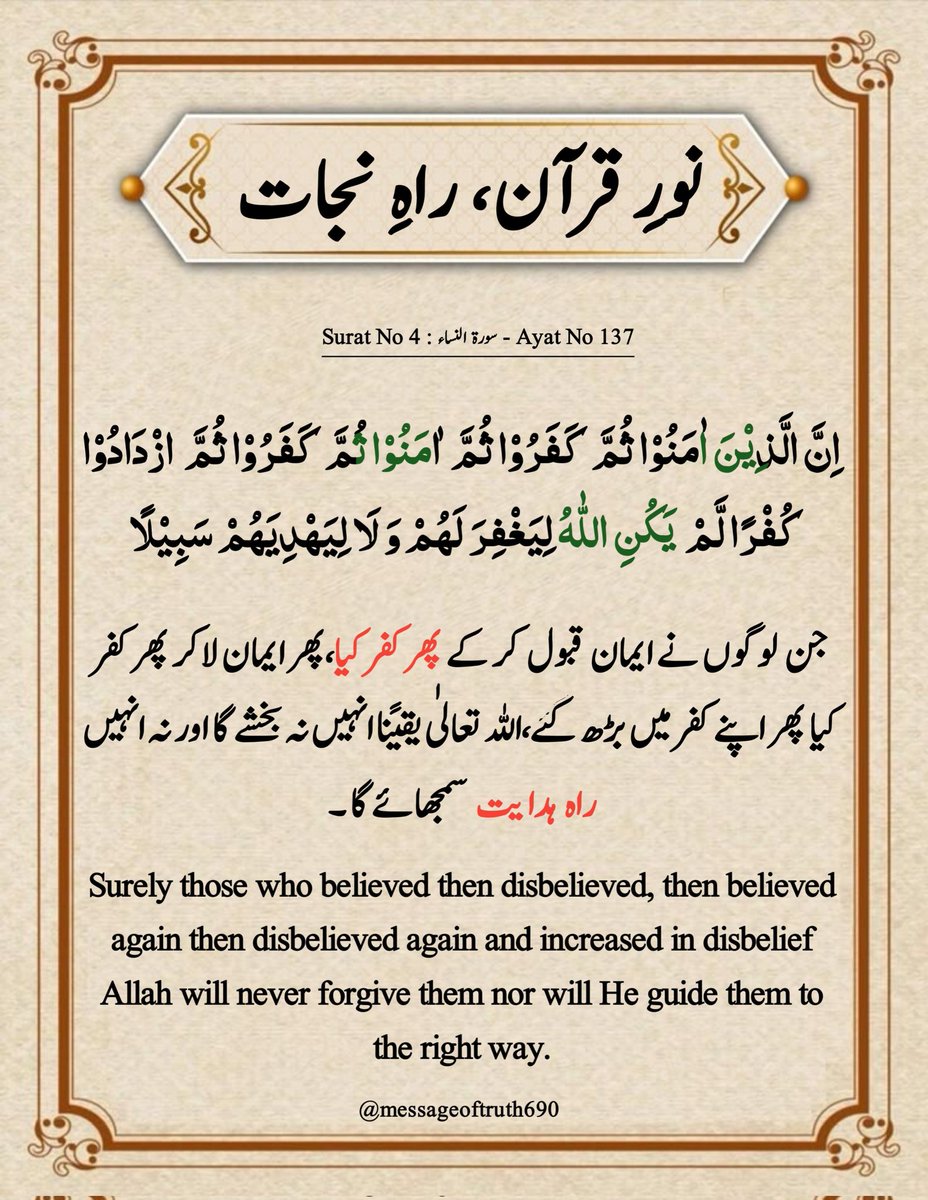 نورِ قرآن، راہِ نجات
Surat No 4 : سورۃ النساء - Ayat No 137
اِنَّ الَّذِيْنَ اٰمَنُوْا ثُمَّ كَفَرُوْا ثُمَّ اٰمَنُوْا ثُمَّ كَفَرُوْا ثُمَّ ازْدَادُوْا
كُفْرًا لَّمْ يَكُنِ اللّٰهُ لِيَغْفِرَ لَهُمْ وَ لَا لِيَهْدِيَهُمْ سَبِيْلًا
جن لوگوں نے ایمان قبول کر کے پھر کفر کیا، پھر ایمان لا کر پھر کفر
کیا پھر اپنے کفر میں بڑھ گئے، اللہ تعالیٰ یقینًا انہیں نہ بخشے گا اور نہ انہیں
راہ ہدایت سمجھائے گا۔
Surely those who believed then disbelieved, then believed
again then disbelieved again and increased in disbelief
Allah will never forgive them nor will He guide them to
the right way.
@messageoftruth690